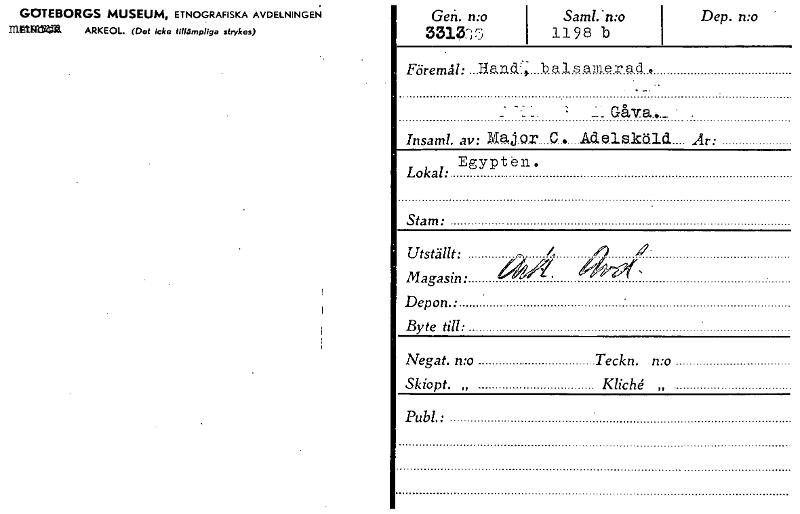 GÖTEBORGS MUSEUM, ETNOGRAFISKA AVDELNINGEN
ARKEOL. (Det icke tillämpliga strykes)
Gen. n:o Saml. n:o Dep. n:o
3313 1198 b
Föremål: Hand, balsamerad.
Gåva.
Insaml. av: Major C. Adelsköld År:
Lokal: Egypten.
Stam:
Utställt:
Magasin: Ark. Avd.
Depon.:
Byte till:
Negat. n:o Teckn. n:o
Skiopt. „ Kliché „
Publ.: